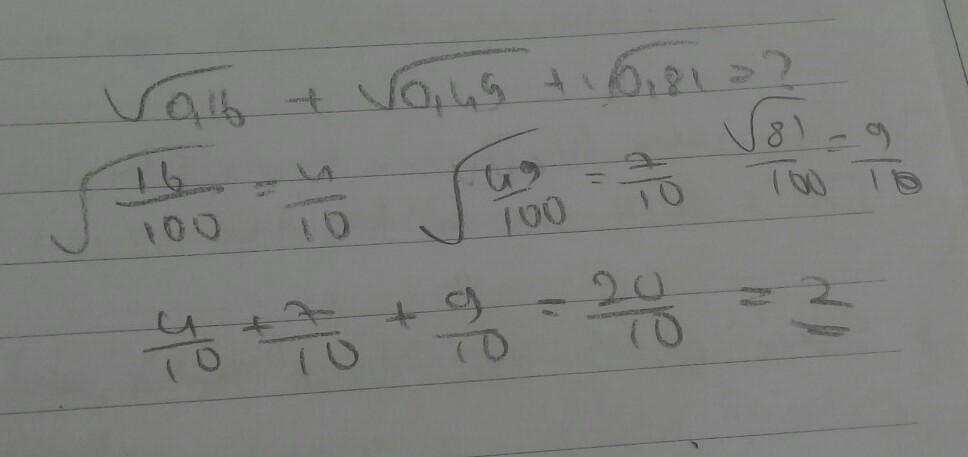 √0,16 + √0,49 + √0,81 = ?
√(16/100) = 4/10 √(49/100) = 7/10 √81/100 = 9/10
4/10 + 7/10 + 9/10 = 20/10 = 2